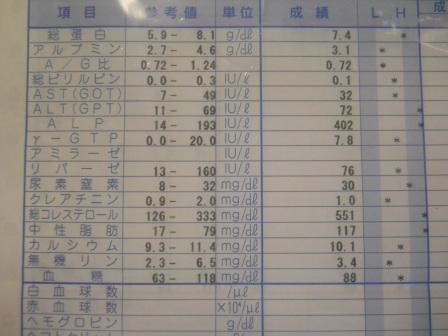 項目 参考値 単位 成績 L H
総蛋白 5.9 - 8.1 g/dl 7.4 *
アルブミン 2.7 - 4.6 g/dl 3.1 *
A/G比 0.72 - 1.24 0.72 *
総ビリルビン 0.0 - 0.3 IU/l 0.1 *
AST(GOT) 7 - 49 IU/l 32 *
ALT(GPT) 11 - 69 IU/l 72 *
ALP 14 - 193 IU/l 402 *
γ-GTP 0.0 - 20.0 IU/l 7.8 *
アミラーゼ IU/l
リパーゼ 13 - 160 IU/l 76 *
尿素窒素 8 - 32 mg/dl 30 *
クレアチニン 0.9 - 2.0 mg/dl 1.0 *
総コレステロール 126 - 333 mg/dl 551 *
中性脂肪 17 - 79 mg/dl 117 *
カルシウム 9.3 - 11.4 mg/dl 10.1 *
無機リン 2.3 - 6.5 mg/dl 3.4 *
血糖 63 - 118 mg/dl 88 *
白血球数 /μl
赤血球数 ×10⁴/μl
ヘモグロビン g/dl